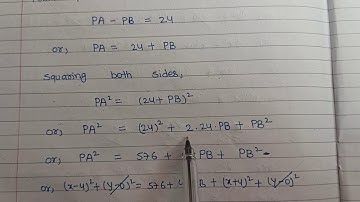 PA - PB = 24
or, PA = 24 + PB
Squaring both sides,
PA² = (24+PB)²
or, PA² = (24)² + 2.24.PB + PB²
or, PA² = 576 + PB + PB²
or, (x-4)²+(y-0)² = 576+4 B + (x+4)² + (y-0)²